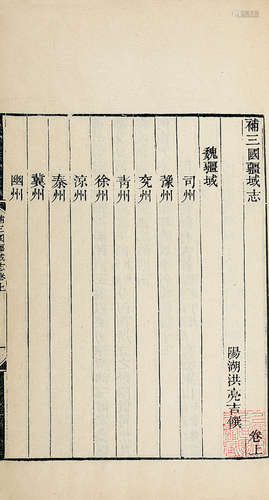 補三國疆域志
卷上
陽湖洪亮吉僎
魏疆域
司州
豫州
兗州
青州
徐州
涼州
秦州
冀州
幽州
補三國疆域志卷上